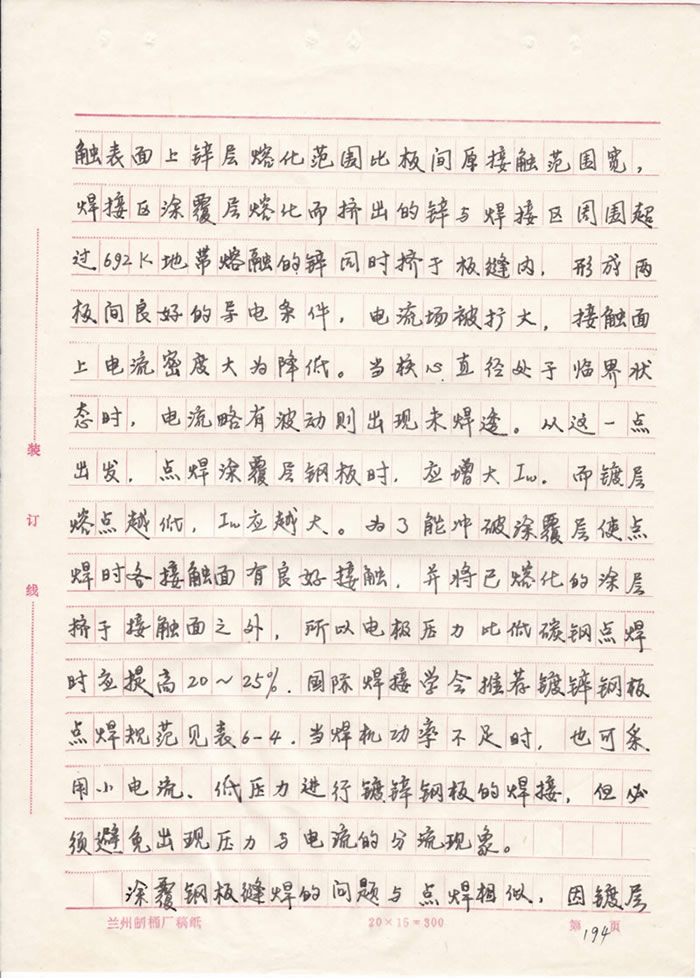 触表面上锌层熔化范围比板间原接触范围宽，
焊接区涂覆层熔化而挤出的锌与焊接区周围超
过692K地带熔融的锌同时挤于板缝内，形成两
板间良好的导电条件，电流场被扩大，接触面
上电流密度大为降低。当核心直径处于临界状
态时，电流略有波动则出现未焊透。从这一点
出发，点焊涂覆层钢板时，应增大Iw．而镀层
熔点越低，Iw应越大。为了能冲破涂覆层使点
焊时各接触面有良好接触，并将已熔化的涂层
挤于接触面之外，所以电极压力比低碳钢点焊
时应提高20～25%．国际焊接学会推荐镀锌钢板
点焊规范见表6-4．当焊机功率不足时，也可采
用小电流、低压力进行镀锌钢板的焊接，但必
须避免出现压力与电流的分流现象。
涂覆钢板缝焊的问题与点焊相似，因镀层
装
订
线
兰州制桶厂稿纸
20×15=300
第194页